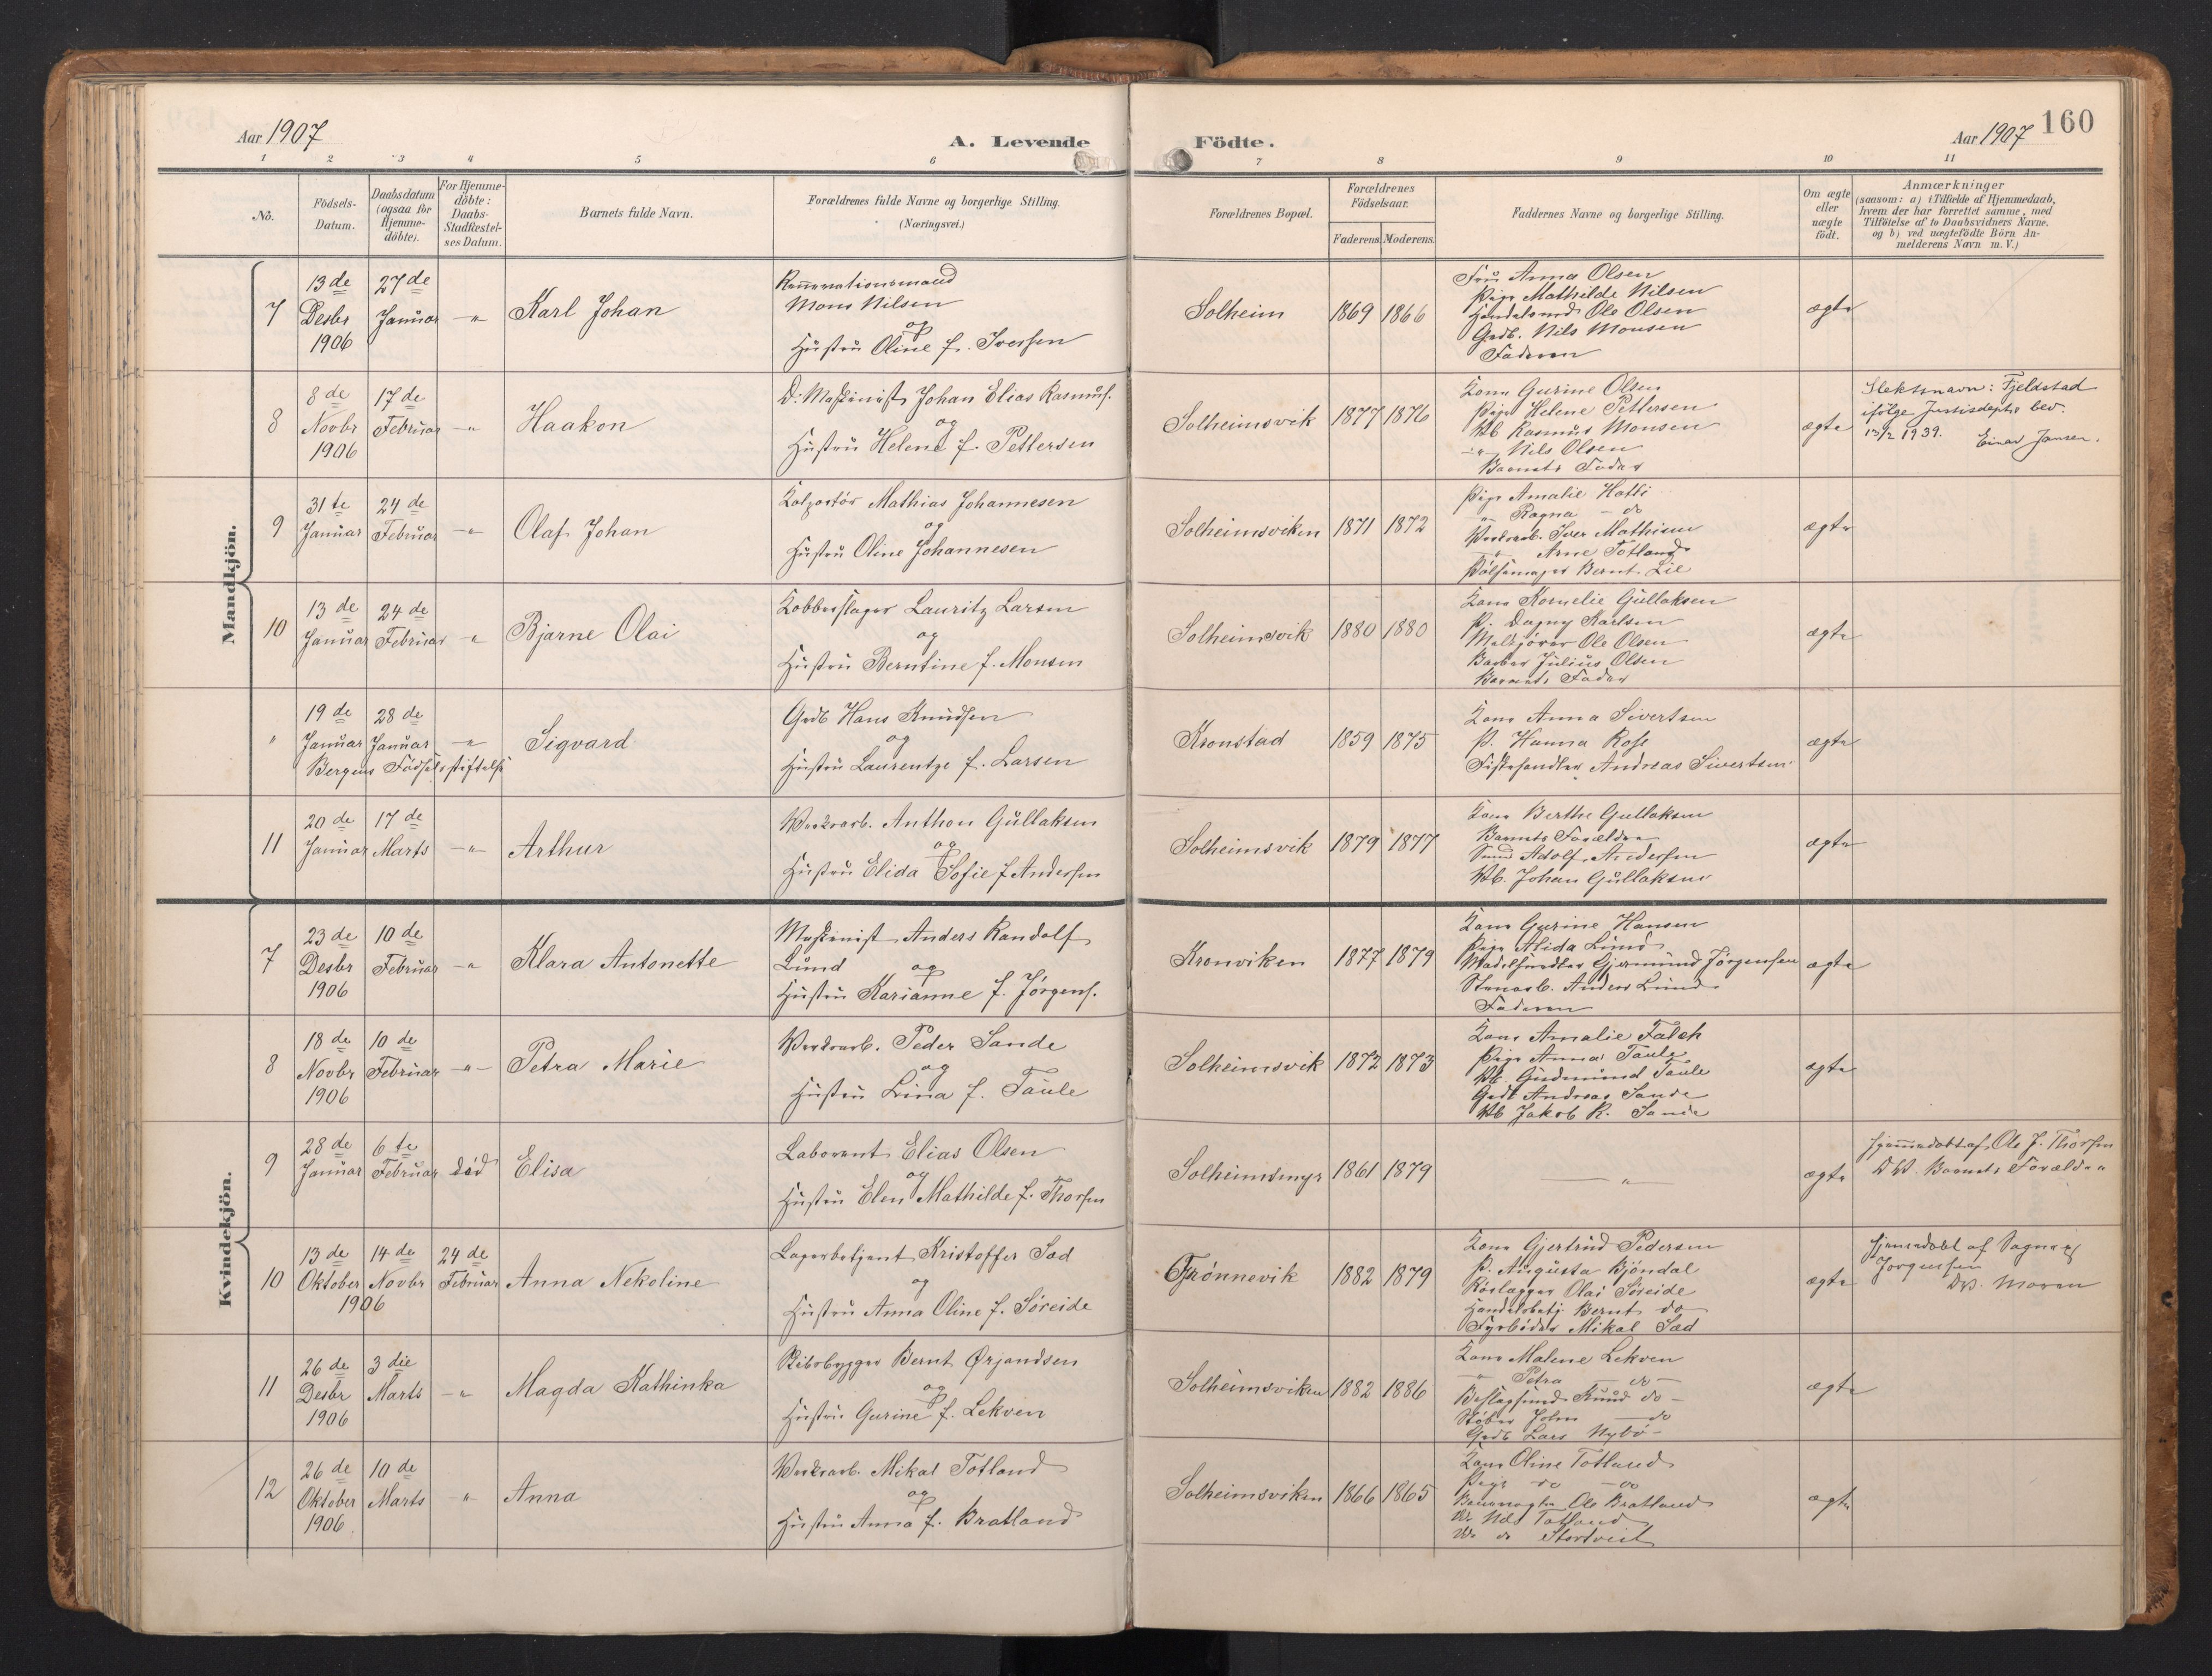 Aar 1907
A. Levende
Födte.
Aar 1907
160
1 2 3 4 5 6 7 8 9 10 11
No.
Födsels-
Datum.
Daabsdatum
(ogsaa för
Hjemme-
döbte).
For Hjemme-
döbte:
Daabs-
Stadfæstel-
ses Datum.
Barnets fulde Navn.
Forældrenes fulde Navne og borgerlige Stilling.
(Næringsvei.)
Forældrenes Bopæl.
Forældrenes
Födselsaar.
Faderens Moderens.
Faddernes Navne og borgerlige Stilling.
Om ægte
eller
uægte
födt.
Anmærkninger
(saasom: a) i Tilfælde af Hjemmedaab,
hvem der har forrettet samme, med
Tilföielse af to Daabsvidners Navne.
og b) ved uægtefödte Börn An-
melderens Navn m. V.)
Mandkjön.
7
13 de
Desbr
1906
27 de
Januar
-"-
Karl Johan
Renovationsmand
Mons Nilsen
og
Hustru Oline f. Iversen
Solheim
1869 1866
Fru Anna Olsen
Pige Mathilde Nilsen
Handelsmd Ole Olsen
Grdb. Nils Monsen
Faderen
ægte
8
8 de
Novbr
1906
17 de
Februar
-"-
Haakon
D. Maskinist Johan Elias Rasmus.
og
Hustru Helene f. Pettersen
Solheimsvik
1877 1876
Kone Gurine Olsen
Pige Helene Pettersen
Vb Rasmus Monsen
-"- Nils Olsen
Barnets Fader
ægte
Slektsnavn: Fjeldstad
ifølge Justisdepts bev.
13/2 1939. Einar Jansen.
9
31 te
Januar
24 de
Februar
-"-
Olaf Johan
Kolportør Mathias Johannesen
og
Hustru Oline Johannesen
Solheimsviken
1871 1872
Pige Amalie Hatli
-"- Ragna - do
Verksarb. Iver Mathisen
-"- Arne Totland
Pølsemager Bernt Lie
ægte
10
13 de
Januar
24 de
Februar
"
Bjarne Olai
Kobberslager Lauritz Larsen
og
Hustru Berntine f. Monsen
Solheimsvik
1880 1880
Kone Kornelie Gullaksen
P. Dagny Karlsen
Melkjører Ole Olsen
Barber Julius Olsen
Barnets Fader
ægte
"
19 de
Januar
28 de
Januar
-"-
Bergens Fødselsstiftelse
Sigvard
Grdb Hans Knudsen
og
Hustru Laurentze f. Larsen
Kronstad
1859 1875
Kone Anna Sivertsen
P. Hanna Rose
Fiskehandler Andreas Sivertsen
ægte
11
20 de
Januar
17 de
Marts
-"-
Arthur
Verksarb. Anthon Gullaksen
og
Hustru Elida Sofie f Andersen
Solheimsvik
1879 1877
Kone Berthe Gullaksen
Barnets Forældre
Smed Adolf Andersen
Vb. Johan Gullaksen
ægte
Kvindekjön.
7
23 de
Desbr
1906
10 de
Februar
-"-
Klara Antonette
Maskinist Anders Randolf
Lund og
Hustru Karianne f. Jørgens.
Kronviken
1877 1879
Kone Gurine Hansen
Pige Alida Lund
Gjermund Jørgensen
Stenarb. Anders Lund
Faderen
ægte
8
18 de
Novbr
1906
10 de
Februar
-"-
Petra Marie
Verksarb. Peder Sande
og
Hustru Lina f. Taule
Solheimsvik
1872 1873
Kone Amalie Falch
Pige Anna Taule
Vb. Gudmund Taule
Grdb Andreas Sande
Vb Jakob R. Sande
ægte
9
28 de
Januar
6 te
Februar
død
Elisa
Laborant Elias Olsen
og
Hustru Elen Mathilde f. Thorsen
Solheimsmyr
1861 1879
-"-
ægte
Hjemmedøbt af Ole J. Thorsen
DV. Barnets Forældre
10
13 de
Oktober
1906
14 de
Novbr
24 de
Februar
Anna Nekoline
Lagerbetjent Kristoffer Sæd
og
Hustru Anna Oline f. Søreide
Grønnevik
1882 1879
Kone Gjertrud Pedersen
P. Augusta Bjöndal
Rørlægger Olai Søreide
Handelsbetj. Bernt do
Fyrbøder Mikal Sæd
ægte
Hjemmedøbt af
Jørgensen
DV. Moren
11
26 de
Desbr
1906
3 die
Marts
-"-
Magda Kathinka
Skibsbygger Bernt Ørjandsen
og
Hustru Gurine f. Lekven
Solheimsviken
1882 1886
Kone Malene Lekven
-"- Petra - do -
Beslagsmed Knud do -
Støber John - do
Grdb Lars Nybø
ægte
12
26 de
Oktober
1906
10 de
Marts
-"-
Anna
Verksarb. Mikal Totland
og
Hustru Anna f. Bratland
Solheimsviken
1866 1865
Kone Oline Totland
Pige do - do
Ole Bratland
do. Nils Totland
do do Stortveit
ægte